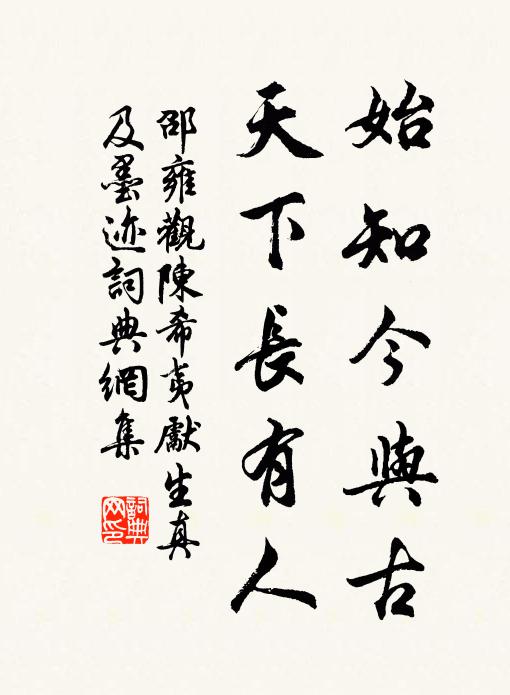 始知今與古
天下長有人
邵雍觀陳希夷獻生真
及墨迹詞典網集
詞典
网印